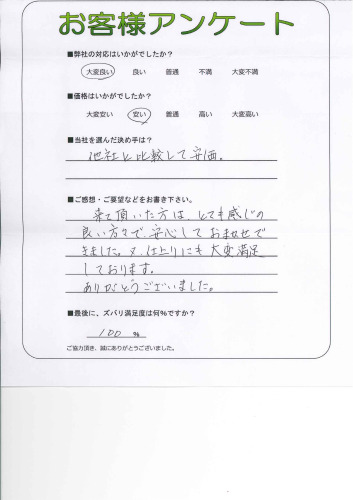 お客様アンケート
■弊社の対応はいかがでしたか?
大変良い 良い 普通 不満 大変不満
■価格はいかがでしたか?
大変安い 安い 普通 高い 大変高い
■当社を選んだ決め手は?
他社と比較して安価。
■ご感想・ご要望などをお書き下さい。
来て頂いた方は、とても感じの
良い方々で、安心しておまかせで
きました。又、仕上りにも大変満足
しております。
ありがとうございました。
■最後に、ズバリ満足度は何%ですか?
100 %
ご協力頂き、誠にありがとうございました。